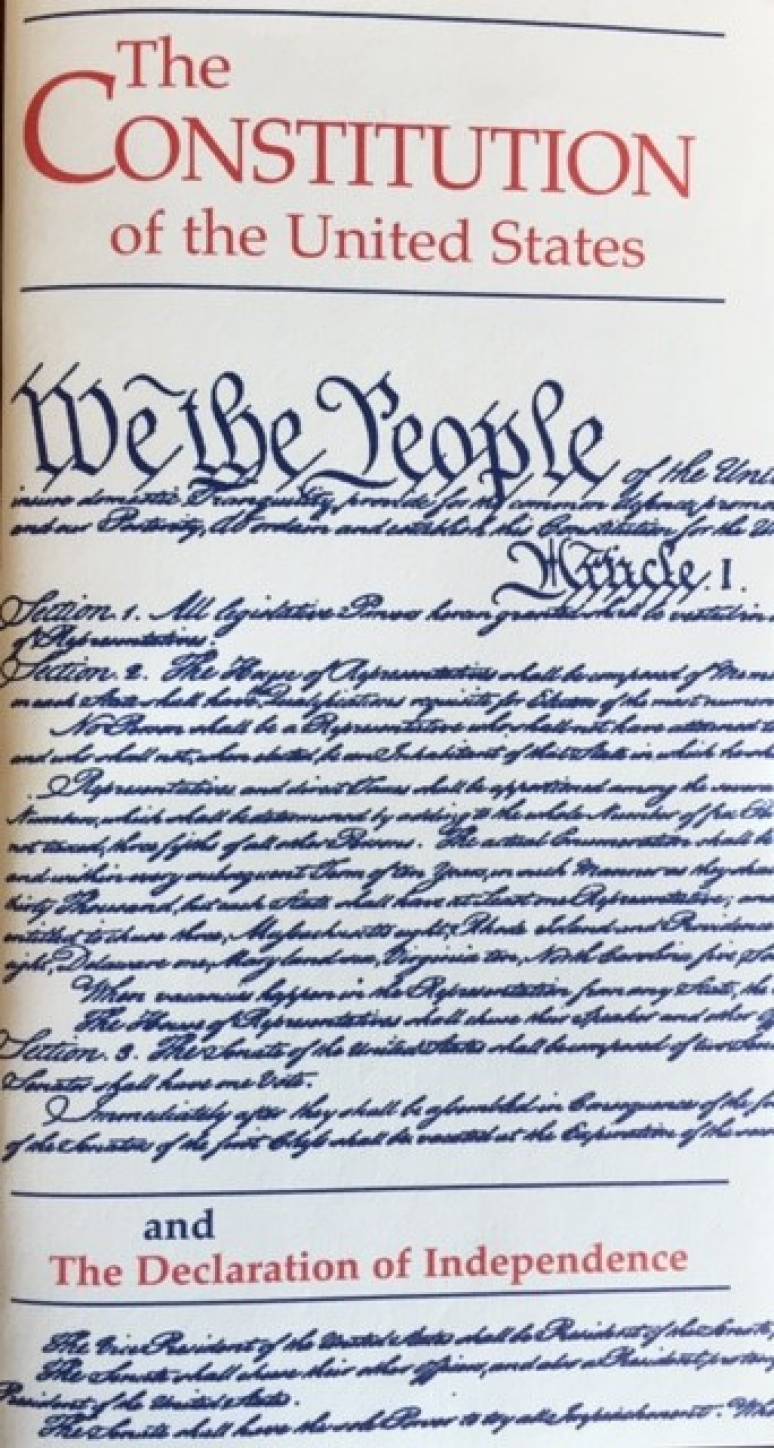 The
CONSTITUTION
of the United States
We the People of the Unit
insure domestic Tranquility, provide for the common defence, promo
and our Posterity, do ordain and establish this Constitution for the Un
Article. I.
Section. 1. All legislative Powers herein granted shall be vested in
of Representatives.
Section. 2. The House of Representatives shall be composed of Mem
in each State shall have Qualifications requisite for Electors of the most numer
No Person shall be a Representative who shall not have attained t
and who shall not, when elected, be an Inhabitant of that State in which he sh
Representatives and direct Taxes shall be apportioned among the severa
Numbers, which shall be determined by adding to the whole Number of free Pe
not taxed, three fifths of all other Persons. The actual Enumeration shall be
and within every subsequent Term of ten Years, in such Manner as they sha
thirty Thousand, but each State shall have at Least one Representative; and
entitled to chuse three, Massachusetts eight, Rhode Island and Providence
eight, Delaware one, Maryland six, Virginia ten, North Carolina five, So
When vacancies happen in the Representation from any State, the
The House of Representatives shall chuse their Speaker and other Of
Section. 3. The Senate of the United States shall be composed of two Sena
Senator shall have one Vote.
Immediately after they shall be assembled in Consequence of the fir
of the Senators of the first Class shall be vacated at the Expiration of the seco
and
The Declaration of Independence
The Vice President of the United States shall be President of the Senate,
The Senate shall chuse their other Officers, and also a President pro temp
President of the United States.
The Senate shall have the sole Power to try all Impeachments. Whe